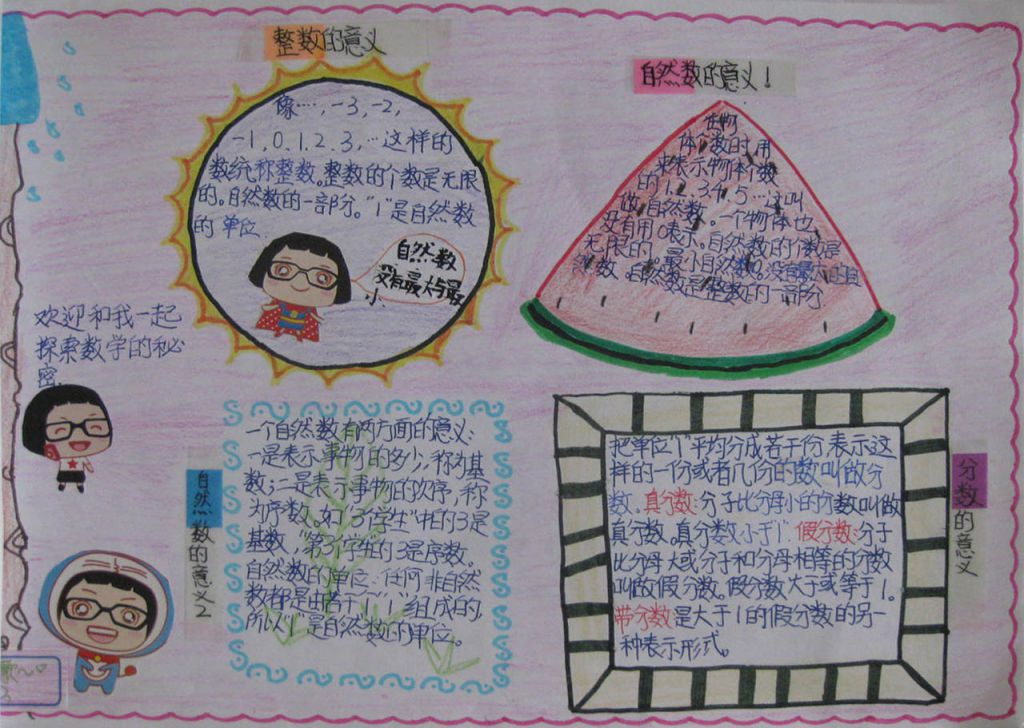 整数的意义
像…，-3，-2，
-1，0，1，2，3，…这样的
数统称整数。整数的个数是无限
的。自然数的一部分。"1"是自然数
的单位.
自然数
没有最大与最
小.
自然数的意义！
在物
体个数时，用
来表示物体个数
的1、2、3、4、5…这叫
做自然数。一个物体也
没有用0表示。自然数的个数是
无限的，最小自然数0，没有最大的自
然数。自然数是整数的一部分
欢迎和我一起
探索数学的秘
密.
自然数的意义2
一个自然数有两方面的意义:
一是表示事物的多少，称为基
数；二是表示事物的次序，称
为序数。如"3个学生"中的3是
基数，"第3个学生的3是序数。
自然数的单位：任何非自然
数都是由若干"1"组成的，
所以"1"是自然数的单位。
分数的意义
把单位"1"平均分成若干份，表示这
样的一份或者几份的数叫做分
数。真分数:分子比分母小的分数叫做
真分数，真分数小于1。假分数:分子
比分母大或分子和分母相等的分数
叫做假分数。假分数大于或等于1。
带分数是大于1的假分数的另
一种表示形式。